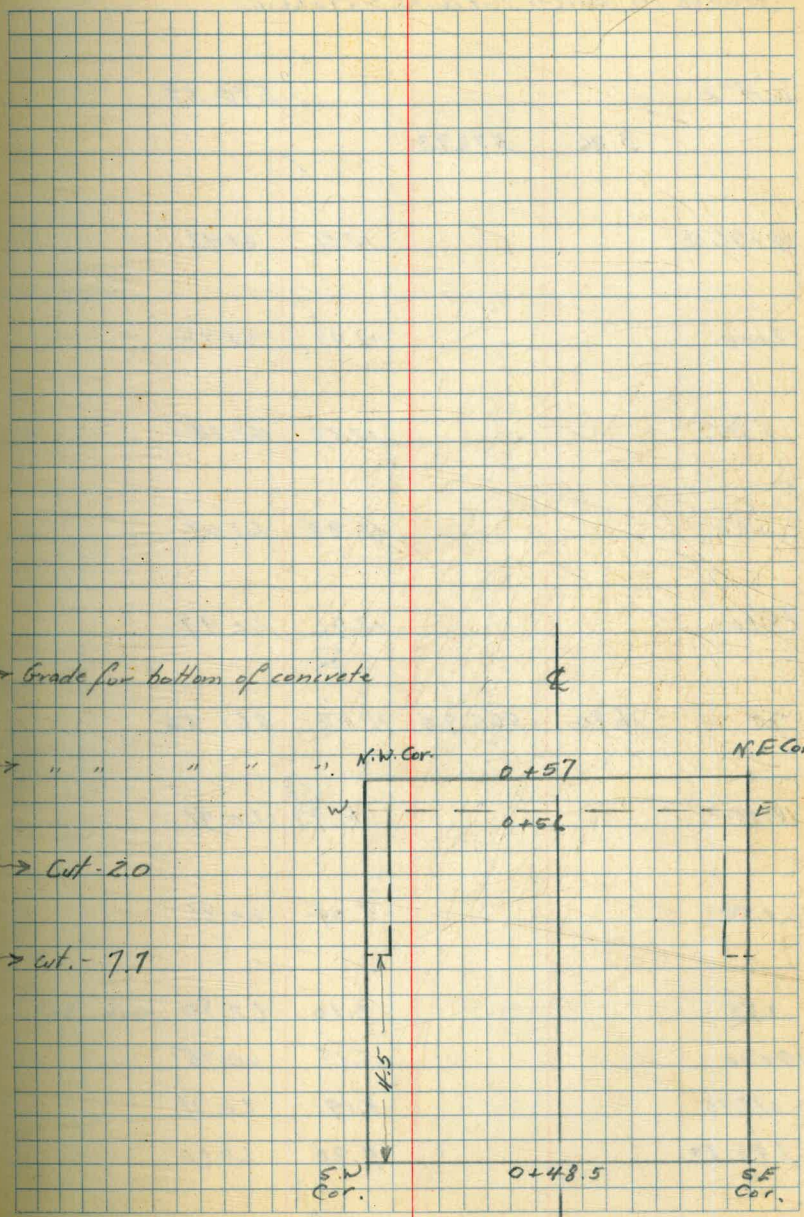 Grade for bottom of concrete
℄
N.W. Cor.
N.E Cor
" " " " "
0+57
W.
0+56
E
Cut - 2.0
cut. - 7.7
4.5
S.W
Cor.
0+48.5
S.E
Cor.